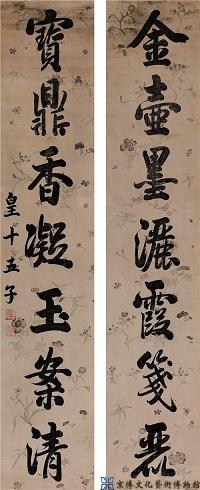 金壺墨灑霞箋麗
寶鼎香凝玉案清
皇十五子
京傳文化藝術博物館